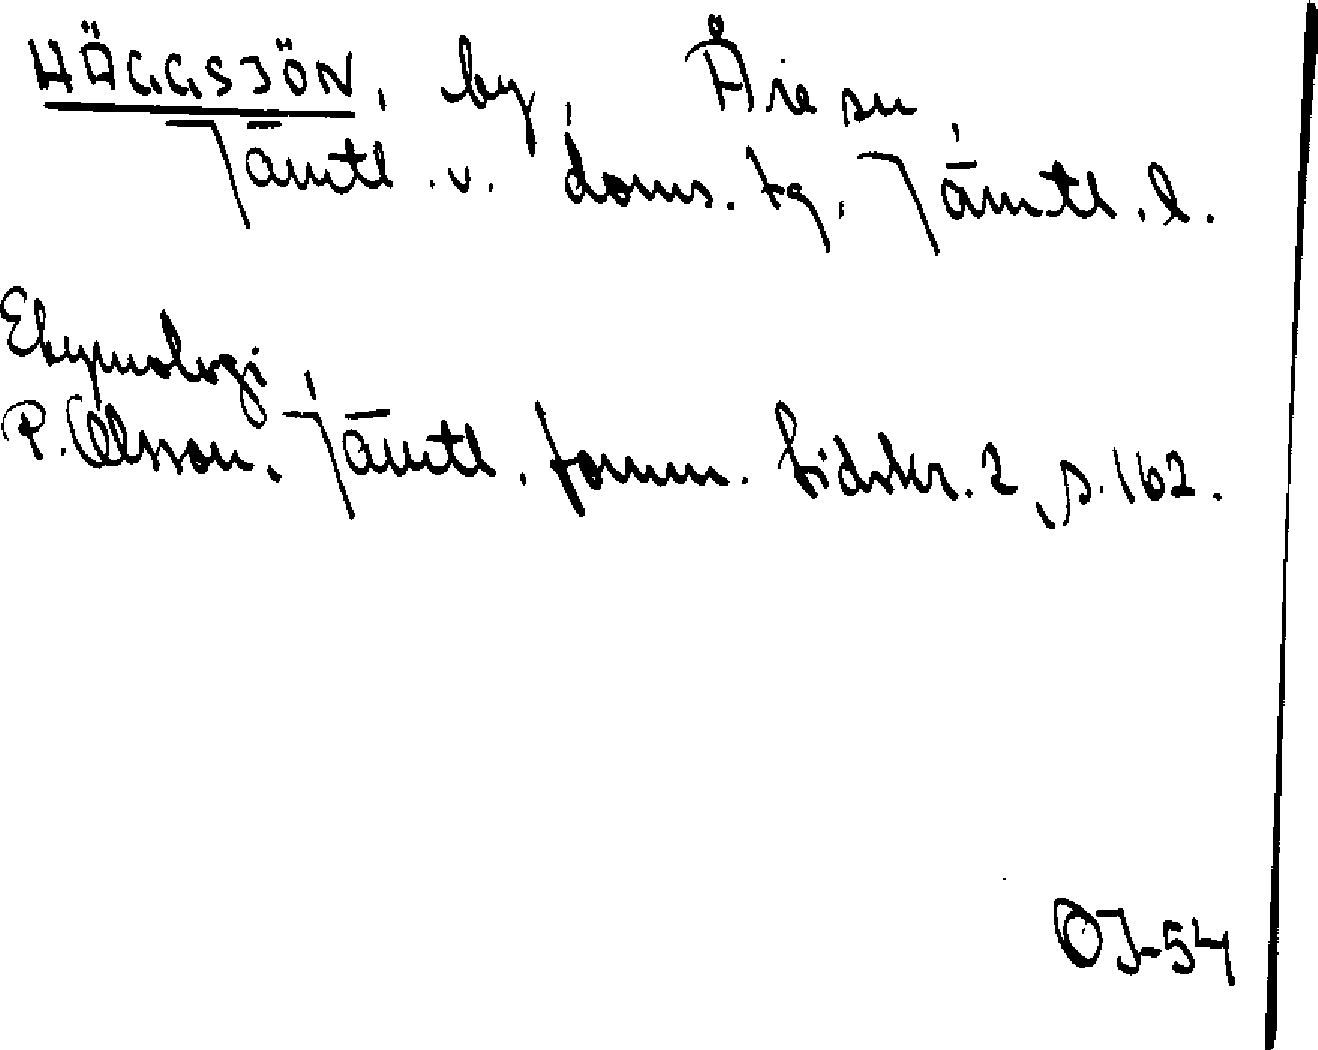 HÄGGSJÖN, by, Åre sn,
Jämtl. v. doms. tg, Jämtl. l.
Etymologi,
P. Olsson, Jämtl. fornm. tidskr. 2, s. 162.
OJ-54